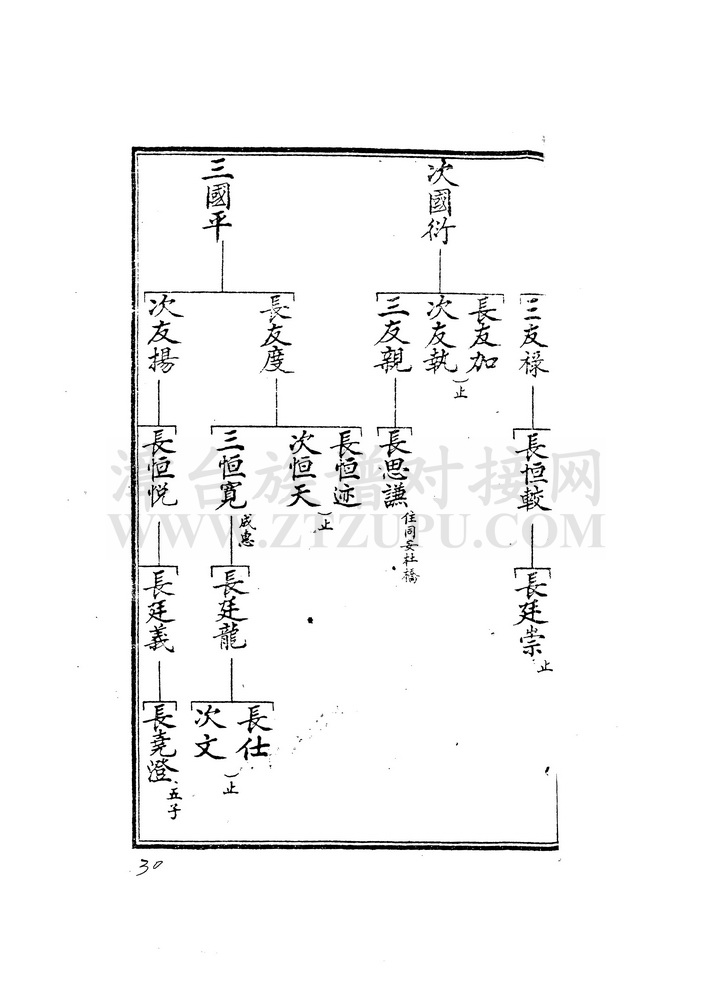 三友祿
長恒較
長廷崇
止
次國衍
長友加
次友執
止
三友親
長思謙
住同安社橋
三國平
長友度
長恒迹
次恒天
止
三恒寬
成惠
長廷龍
長仕
次文
止
次友揚
長恒悦
長廷義
長堯澄
五子
30
台族譜对接网
WWW.ZTZUPU.COM